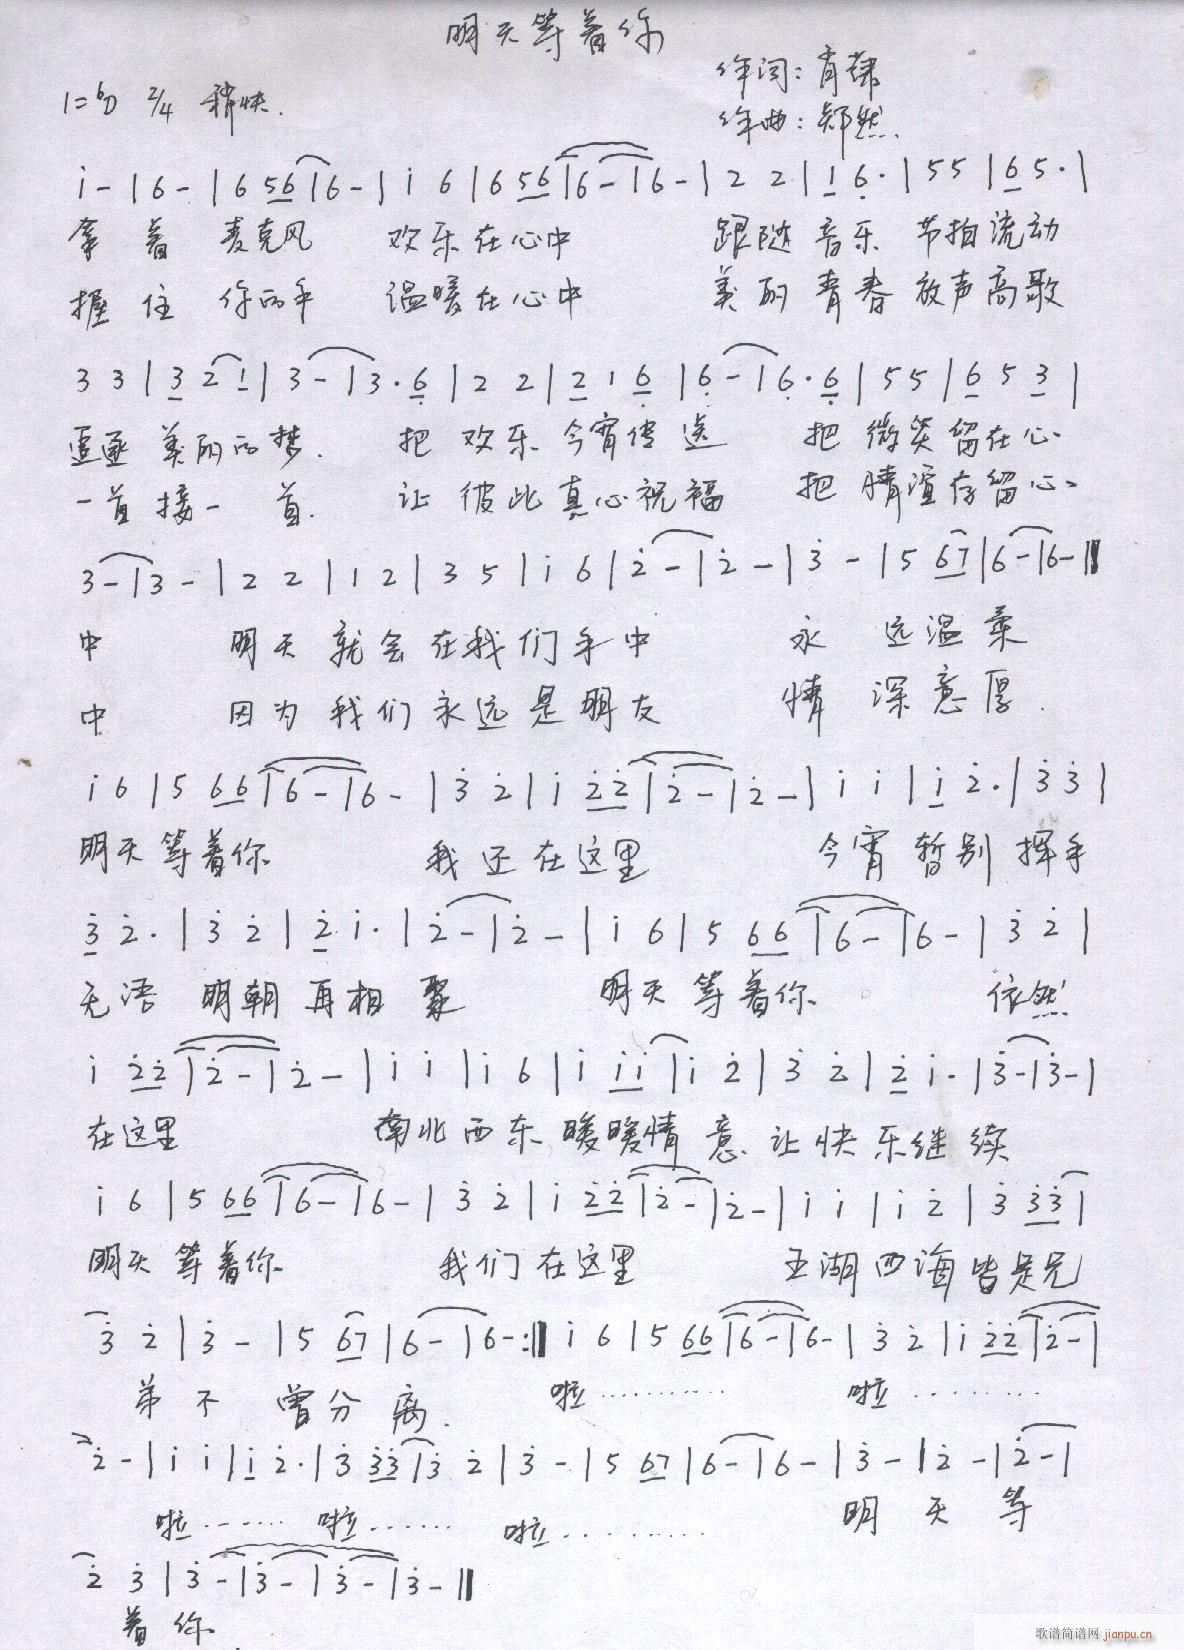 明天等着你
作词：肖
作曲：郑然
1=♭D 2/4 稍快.
i - | 6 - | 6 56 | 6 - | i 6 | 6 56 | 6 - | 6 - | 2 2 | 1 6· | 5 5 | 6 5· |
拿着麦克风 欢乐在心中 跟随音乐 节拍流动
握住你的手 温暖在心中 美丽青春 放声高歌
3 3 | 3 2 1 | 3 - | 3· 6 | 2 2 | 2 1 6 | 6 - | 6· 6 | 5 5 | 6 5 3 |
追逐美丽的梦. 把欢乐今宵传送 把微笑留在心
一首接一首. 让彼此真心祝福 把情谊存留心
3 - | 3 - | 2 2 | 1 2 | 3 5 | i 6 | 2̇ - | 2̇ - | 3̇ - | 5 67 | 6 - | 6 - ‖
中 明天就会在我们手中 永远温柔
中 因为我们永远是朋友 情深意厚.
i 6 | 5 66 | 6 - | 6 - | 3̇ 2̇ | i 2̇2̇ | 2̇ - | 2̇ - | i i | i 2̇· | 3̇ 3̇ |
明天等着你 我还在这里 今宵暂别 挥手
3̇ 2̇· | 3̇ 2̇ | 2̇ i· | 2̇ - | 2̇ - | i 6 | 5 66 | 6 - | 6 - | 3̇ 2̇ |
无语 明朝再相聚 明天等着你 依然
i 2̇2̇ | 2̇ - | 2̇ - | i i | i 6 | i ii | i 2̇ | 3̇ 2̇ | 2̇ i· | 3̇ - | 3̇ - |
在这里 南北西东 暖暖情意 让快乐继续
i 6 | 5 66 | 6 - | 6 - | 3̇ 2̇ | i 2̇2̇ | 2̇ - | 2̇ - | i i | i 2̇ | 3̇ 3̇3̇ |
明天等着你 我们在这里 五湖四海皆是兄
3̇ 2̇ | 3̇ - | 5 67 | 6 - | 6 - :‖ i 6 | 5 66 | 6 - | 6 - | 3̇ 2̇ | i 2̇2̇ | 2̇ - |
弟不曾分离. 啦………… 啦…………
2̇ - | i i | i 2̇· | 3̇ 3̇3̇ | 3̇ 2̇ | 3̇ - | 5 67 | 6 - | 6 - | 3̇ - | 2̇ - | 2̇ - |
啦…… 啦…… 啦………… 明天等
2̇ 3̇ | 3̇ - | 3̇ - | 3̇ - | 3̇ - ‖
着你.
歌谱简谱网 jianpu.cn